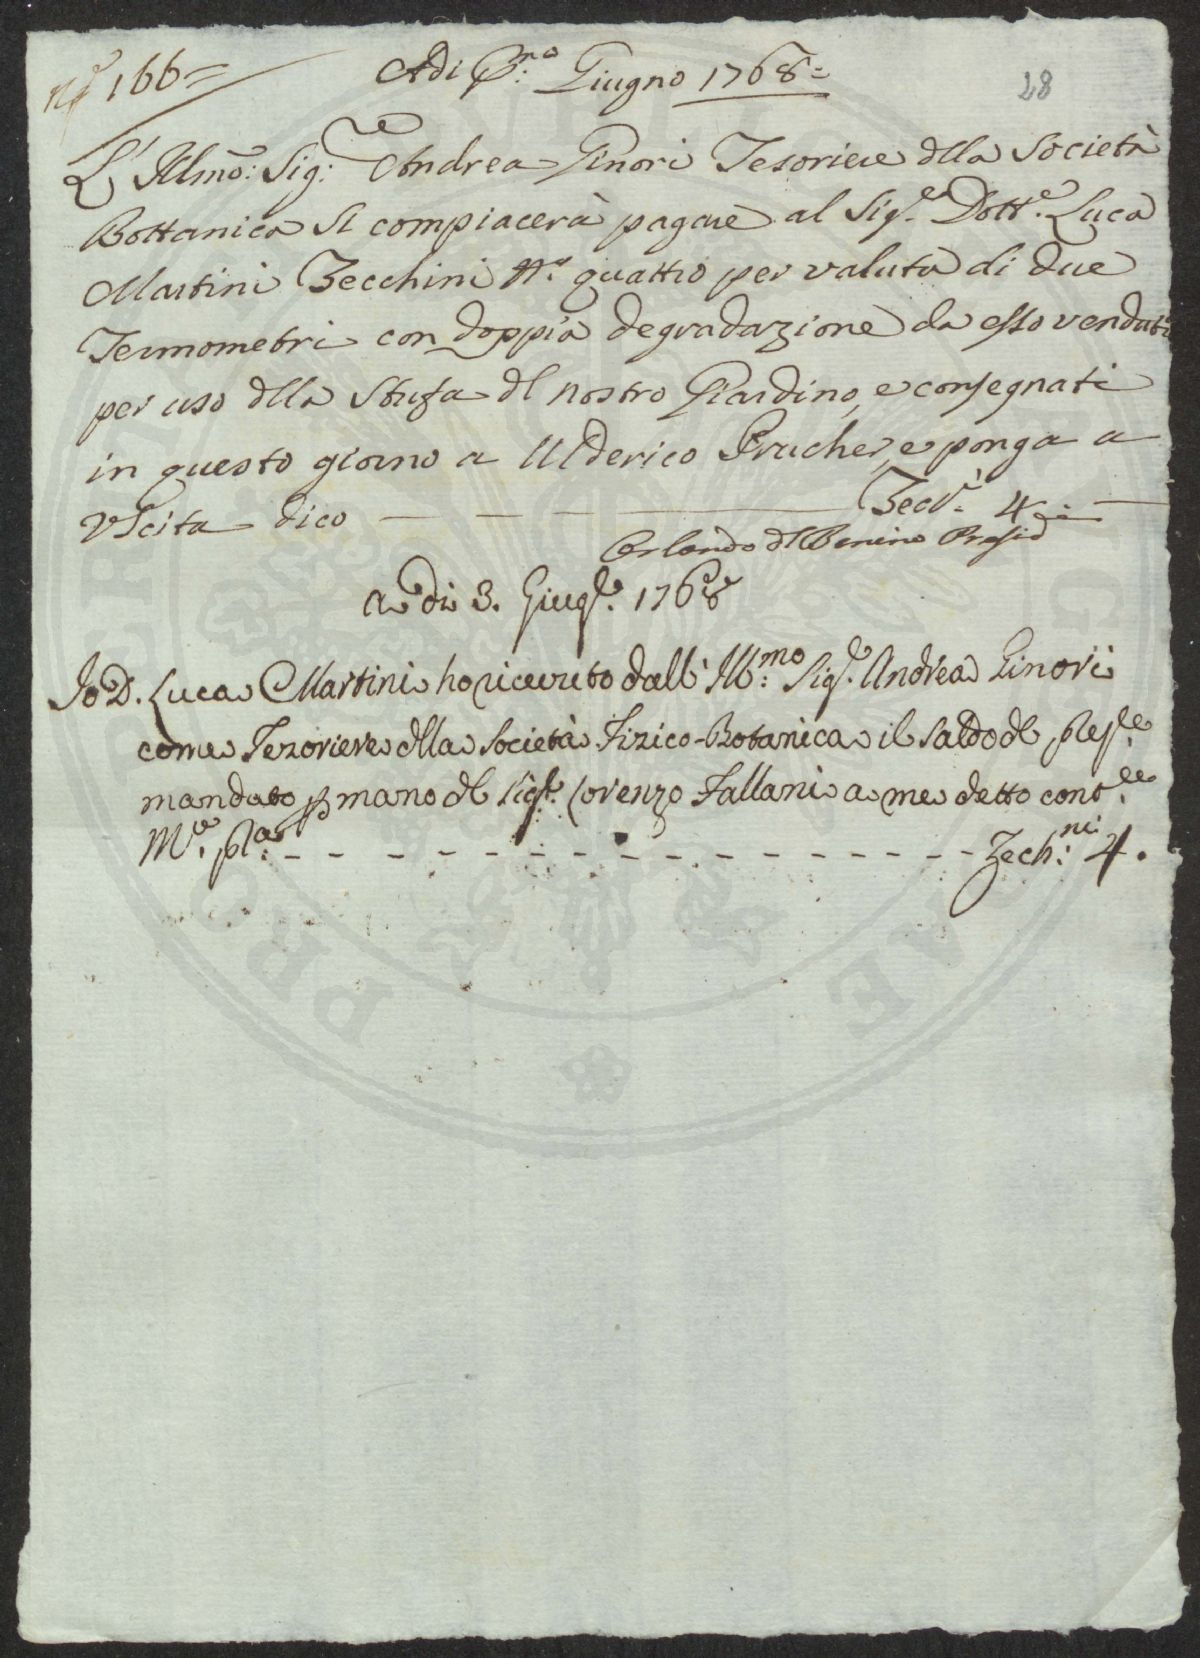 nº 166=
Adi P.mo Giugno 1768=
28
L' Illmõ: Sig:re Andrea Ginori Tesoriere dlla Società
Bottanica si compiacerà pagare al Sig.e Dott.e Luca
Martini Zecchini nº quattro per valuta di due
Termometri con doppia degradazione da esso venduti
per uso dlla Stufa dl nostro Giardino, e consegnati
in questo giorno a Ulderico Prucher, e ponga a
Vscita dico — — — — Zecc.i 4.—
Orlando dl Benino Presid
a di 3. Giug.e 1768
Io D. Luca Martini ho ricevuto dall' Ill.mo Sig.e Andrea Ginori
come Tezoriere dlla Società Fizico-Botanica il saldo dl pres.e
mandato p mano dl Sig.e Lorenzo Fallani a me detto cont.ti
M.o p.a - - - - - - - - - - - - - - Zech.ni: 4.
PRO
AE